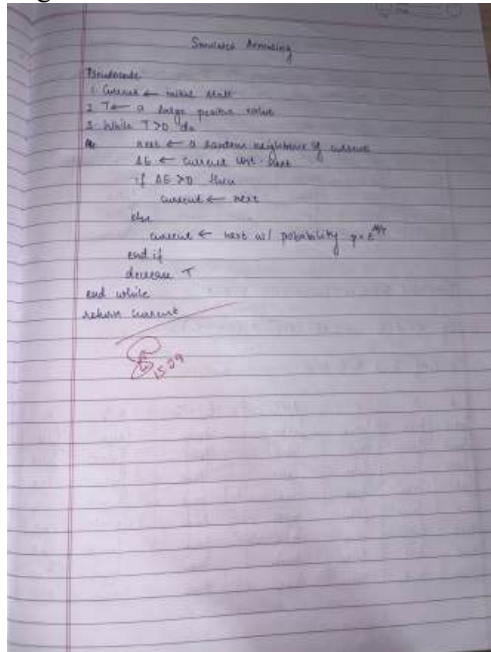 Simulated Annealing
Pseudocode
1. Current ← initial state
2. T ← a large positive value
3. While T > 0 do
next ← a random neighbour of current
ΔE ← current cost - next
if ΔE > 0 then
current ← next
else
current ← next w/ probability p = e^ΔE/T
end if
decrease T
end while
return current
15/09